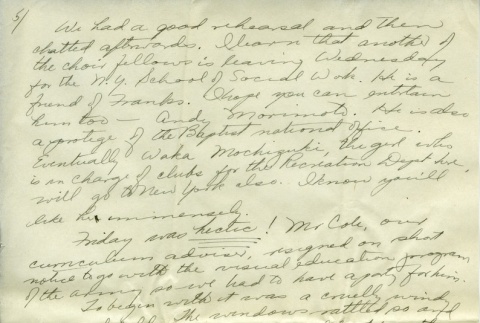 5/
We had a good rehearsal and then
chatted afterwards. I learn that another of
the choir fellows is leaving Wednesday
for the N.Y. School of Social Work. He is a
friend of Franks. I hope you can entertain
him too — Andy Morimoto. He is also
a protege of the Baptist national office.
Eventually Waka Mochizuki, the girl who
is in charge of clubs for the Recreation Dept here,
will go to New York also. I know you'll
like her immensely.
Friday was hectic! Mr Cole, our
curriculum adviser, resigned on short
notice to go with the visual education program
of the army so we had to have a party for him.
To begin with it was a cruel wind
The windows rattled so and